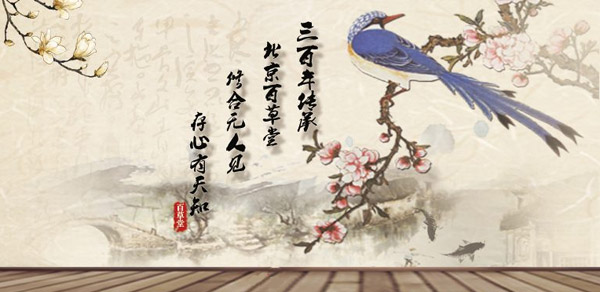 三百年传承
北京百草堂
修合无人见
存心有天知
百草堂